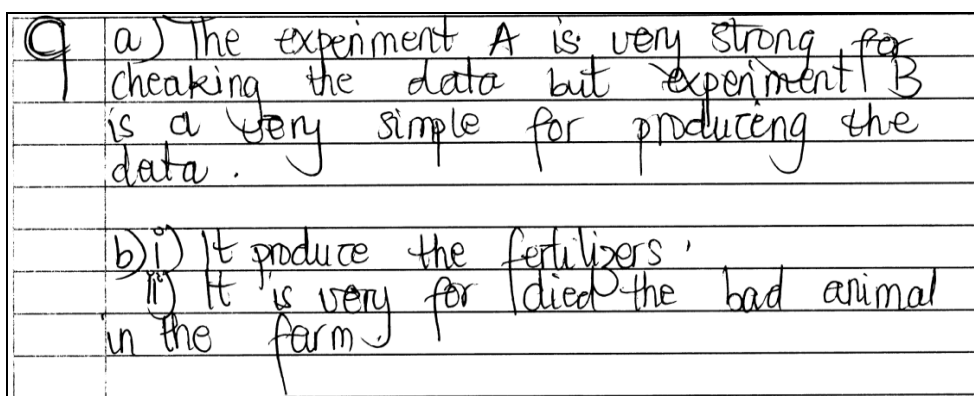 9 a) The experiment A is very strong for
cheaking the data but experiment B
is a very simple for produceng the
data.
b) i) It produce the fertilizers.
ii) It is very for died the bad animal
in the farm.